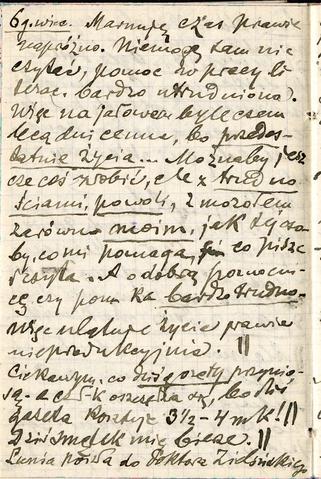 6 g. wiec. Marnuję czas prawie
napróżno. Niemogę sam nic
czytać, pomoc w pracy li
terac. bardzo utrudniona.
Więc na jałowem byleczem
lecą dni cenne, bo przedos-
tatnie życia... Możnaby jesz
cze coś zrobić, ale z trudno
ściami, powoli, z mozołem
zarówno moim, jak tej oso
by, co mi pomaga, co pisze
i czyta. A o dobrą pomocni-
cę, czy pom-ka bardzo trudno.
Więc ulatuje życie prawie
nieprodukcyjnie. ||
Ciekawym, co dziś gazety przynio-
są - a coś-k oszczędza się, bo dziś
gazeta kosztuje 3½-4 mk! ||
Dziś smutek mię bierze. ||
Lunia poszła do Doktora Zielińskiego